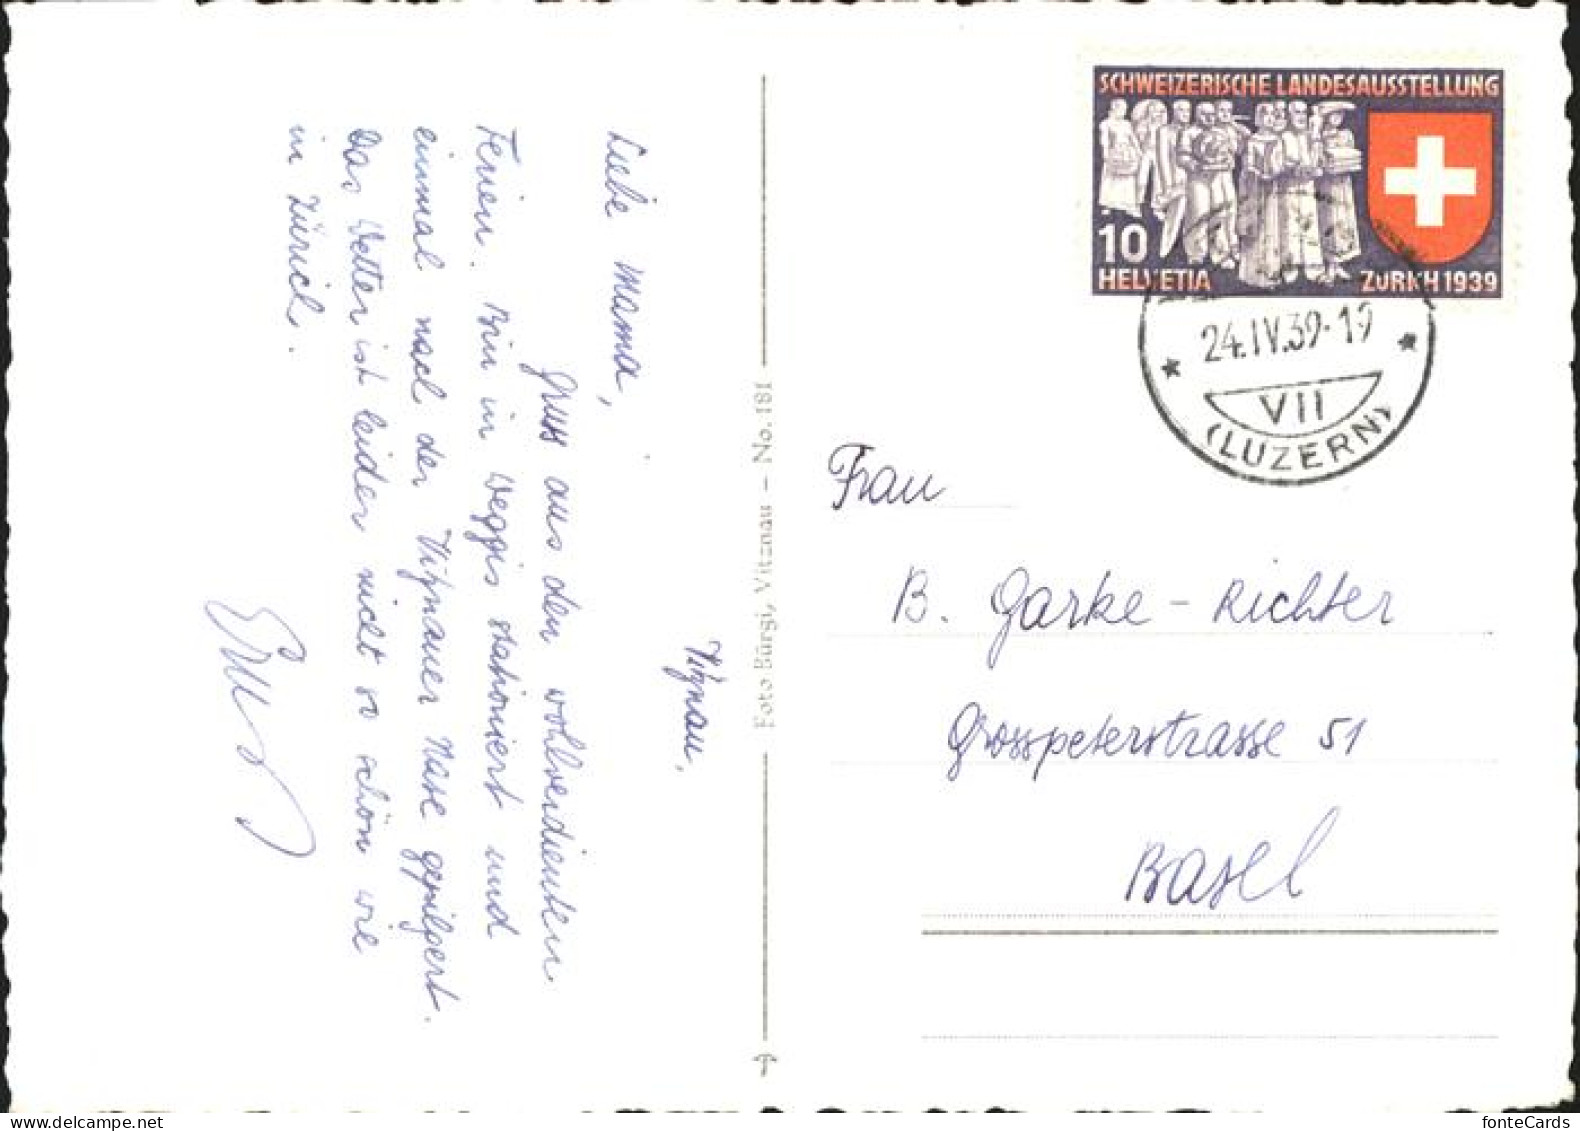 Vitznau,
Liebe Mama,
Gruss aus den wohlverdienten
Ferien. Bin in Weggis stationiert und
einmal nach der Vitznauer Nase gepilgert.
Das Wetter ist leider nicht so schön wie
in Zürich.
Foto Bürgi, Vitznau – No. 181
SCHWEIZERISCHE LANDESAUSSTELLUNG
10
HELVETIA ZÜRICH 1939
24.IV.39-19
VII
(LUZERN)
Frau
B. Garke-Richter
Grosspeterstrasse 51
Basel
fonteCards